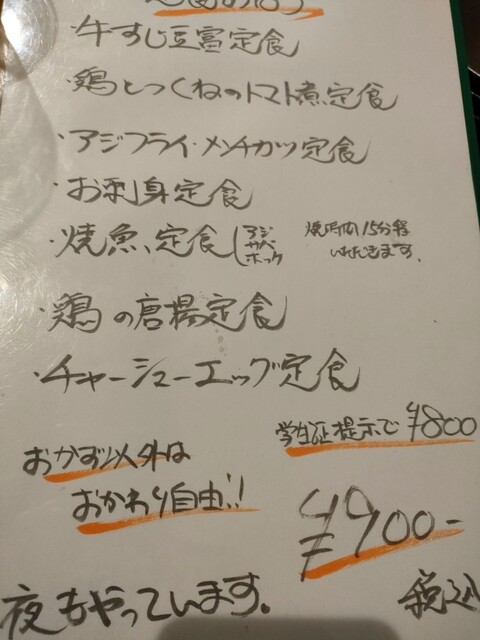 ・牛すじ豆富定食
・鶏とつくねのトマト煮定食
・アジフライ・メンチカツ定食
・お刺身定食
・焼魚、定食
アジ
サバ
ホッケ
焼時間15分程
いただきます。
・鶏の唐揚定食
・チャーシューエッグ定食
学生証提示で¥800
おかず以外は
おかわり自由!!
¥900-
税込
夜もやっています。